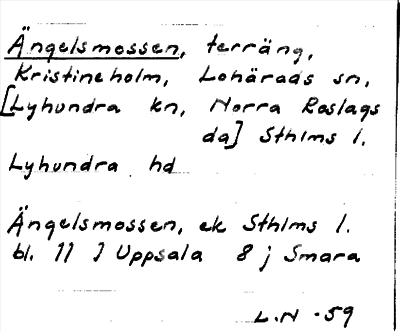 Ängelsmossen, terräng,
Kristineholm, Lohärads sn,
[Lyhundra kn, Norra Roslags
da] Sthlms l.
Lyhundra hd
Ängelsmossen, ek Sthlms l.
bl. 11 J Uppsala 8 j Smara
L.N -59